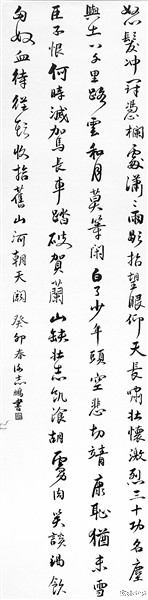 怒髮冲冠憑欄處瀟〻雨歇抬望眼仰天長嘯壯懷激烈三十功名塵
與土八千里路雲和月莫等閑白了少年頭空悲切靖康恥猶未雪
臣子恨何時滅駕長車踏破賀蘭山缺壯志飢飡胡虜肉笑談渴飲
匈奴血待從頭收拾舊山河朝天闕 癸卯春志鵬書